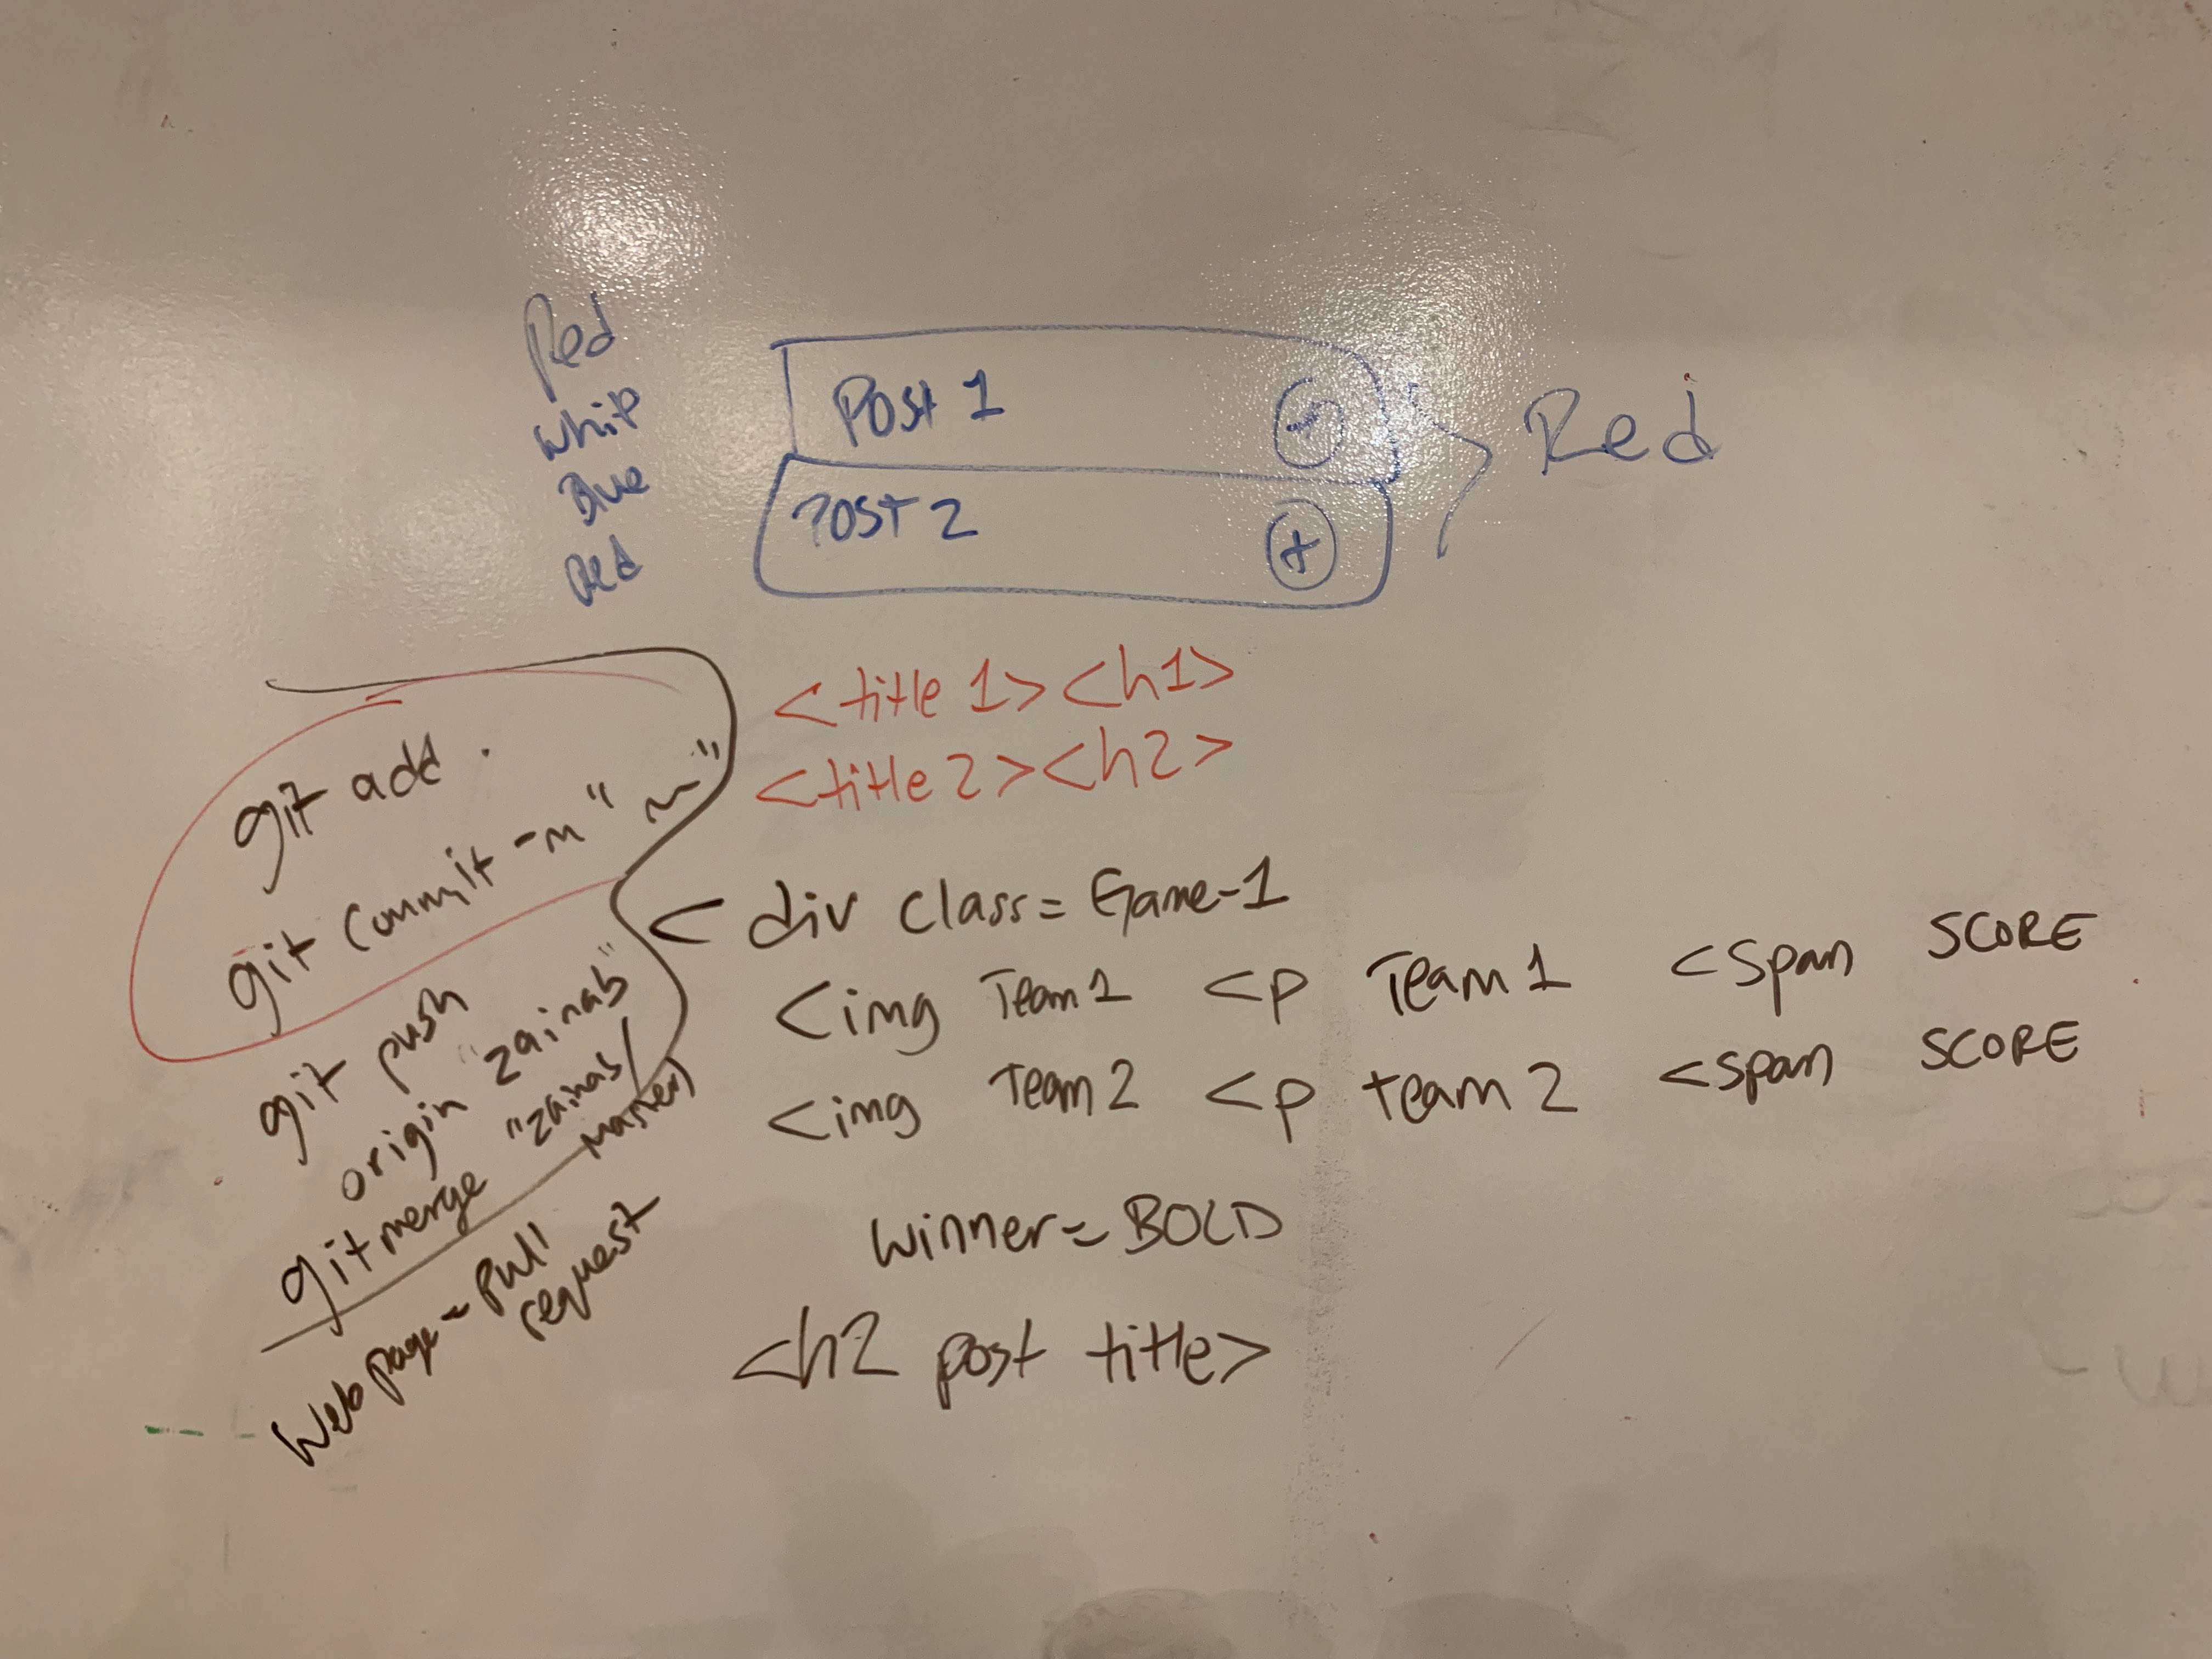 Red
White
Blue
Red
Post 1 -
Post 2 +
Red
<title 1><h1>
<title 2><h2>
git add .
git commit -m " "
git push
origin "zainab"
git merge "zainab/
master)
Web page - pull
request
< div class = Game-1
<img Team 1 <p Team 1 <span SCORE
<img Team 2 <p team 2 <span SCORE
winner = BOLD
<h2 post title>